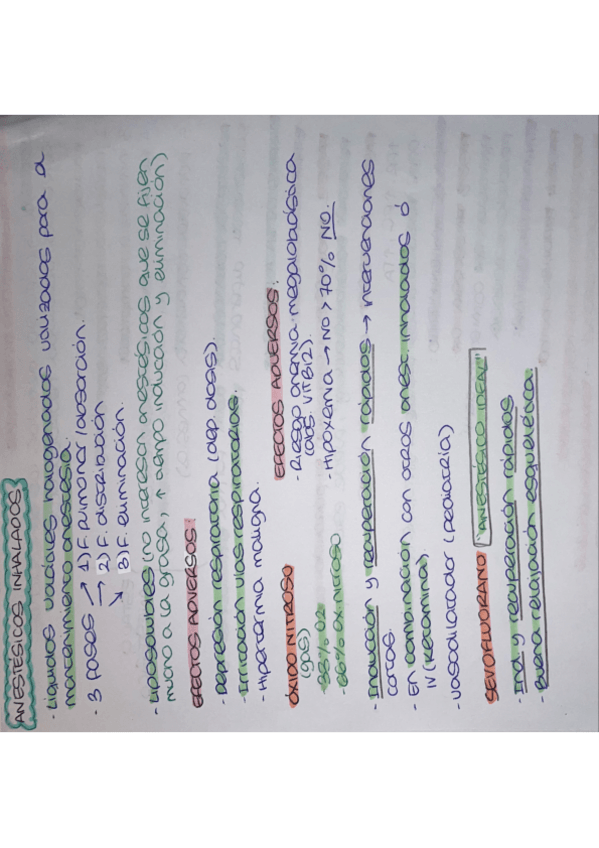 ANESTÉSICOS INHALADOS
- Líquidos volátiles halogenados utilizados para el
mantenimiento anestesia.
- 3 fases → 1) F. pulmonar / absorción.
→ 2) F. distribución
↘ 3) F. eliminación.
- Liposolubles (no interesan anestésicos que se fijen
mucho a la grasa, ↑ tiempo inducción y eliminación)
EFECTOS ADVERSOS:
- Depresión respiratoria (dep. dosis).
- Irritación vías respiratorias.
- Hipertermia maligna.
ÓXIDO NITROSO
(gas)
- 33% O2
- 66% Ox. nitroso
EFECTOS ADVERSOS:
- Riesgo anemia megaloblástica
VITB12).
- Hipoxemia → NO > 70% NO.
- Inducción y recuperación rápidas → intervenciones
cortas.
- En combinación con otros anest. inhalados ó
IV (ketamina).
- Vasodilatador (pediatría)
SEVOFLUORANO "ANESTÉSICO IDEAL"
- Ind. y recuperación rápidas
- Buena relajación esquelética.